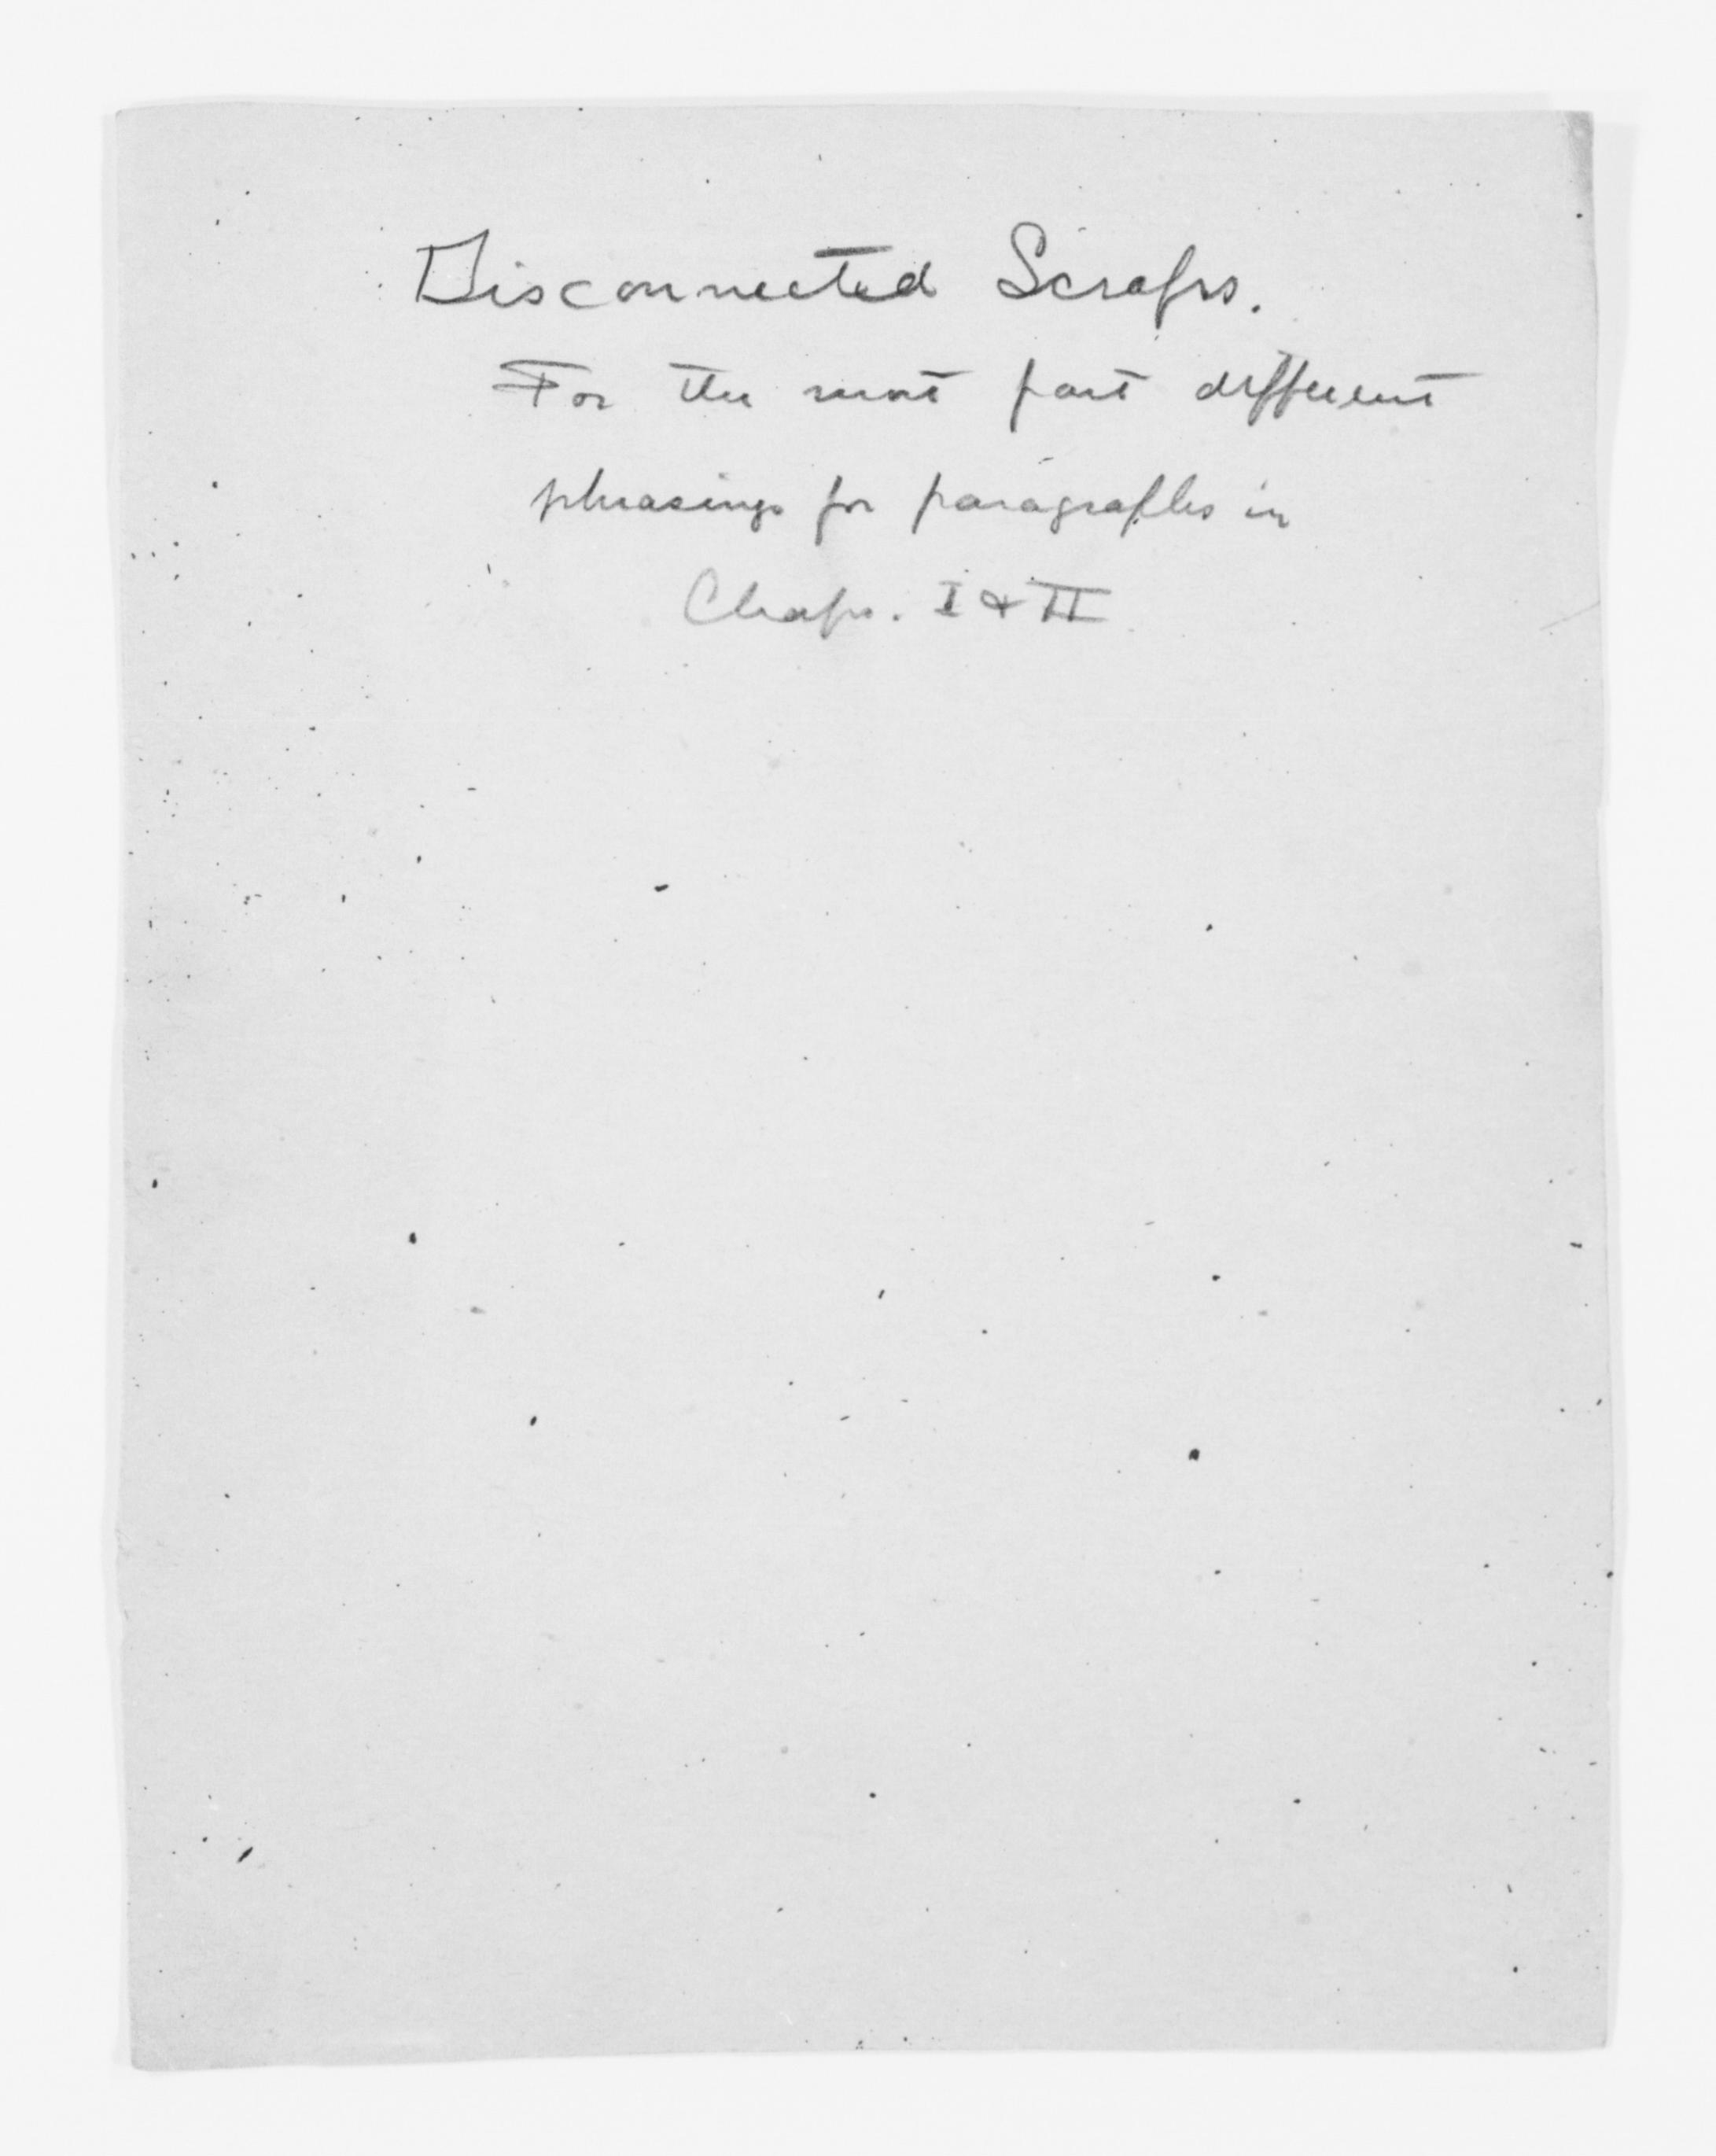 Disconnected Scraps.
For the most part different
phrasings for paragraphs in
Chaps. I & II